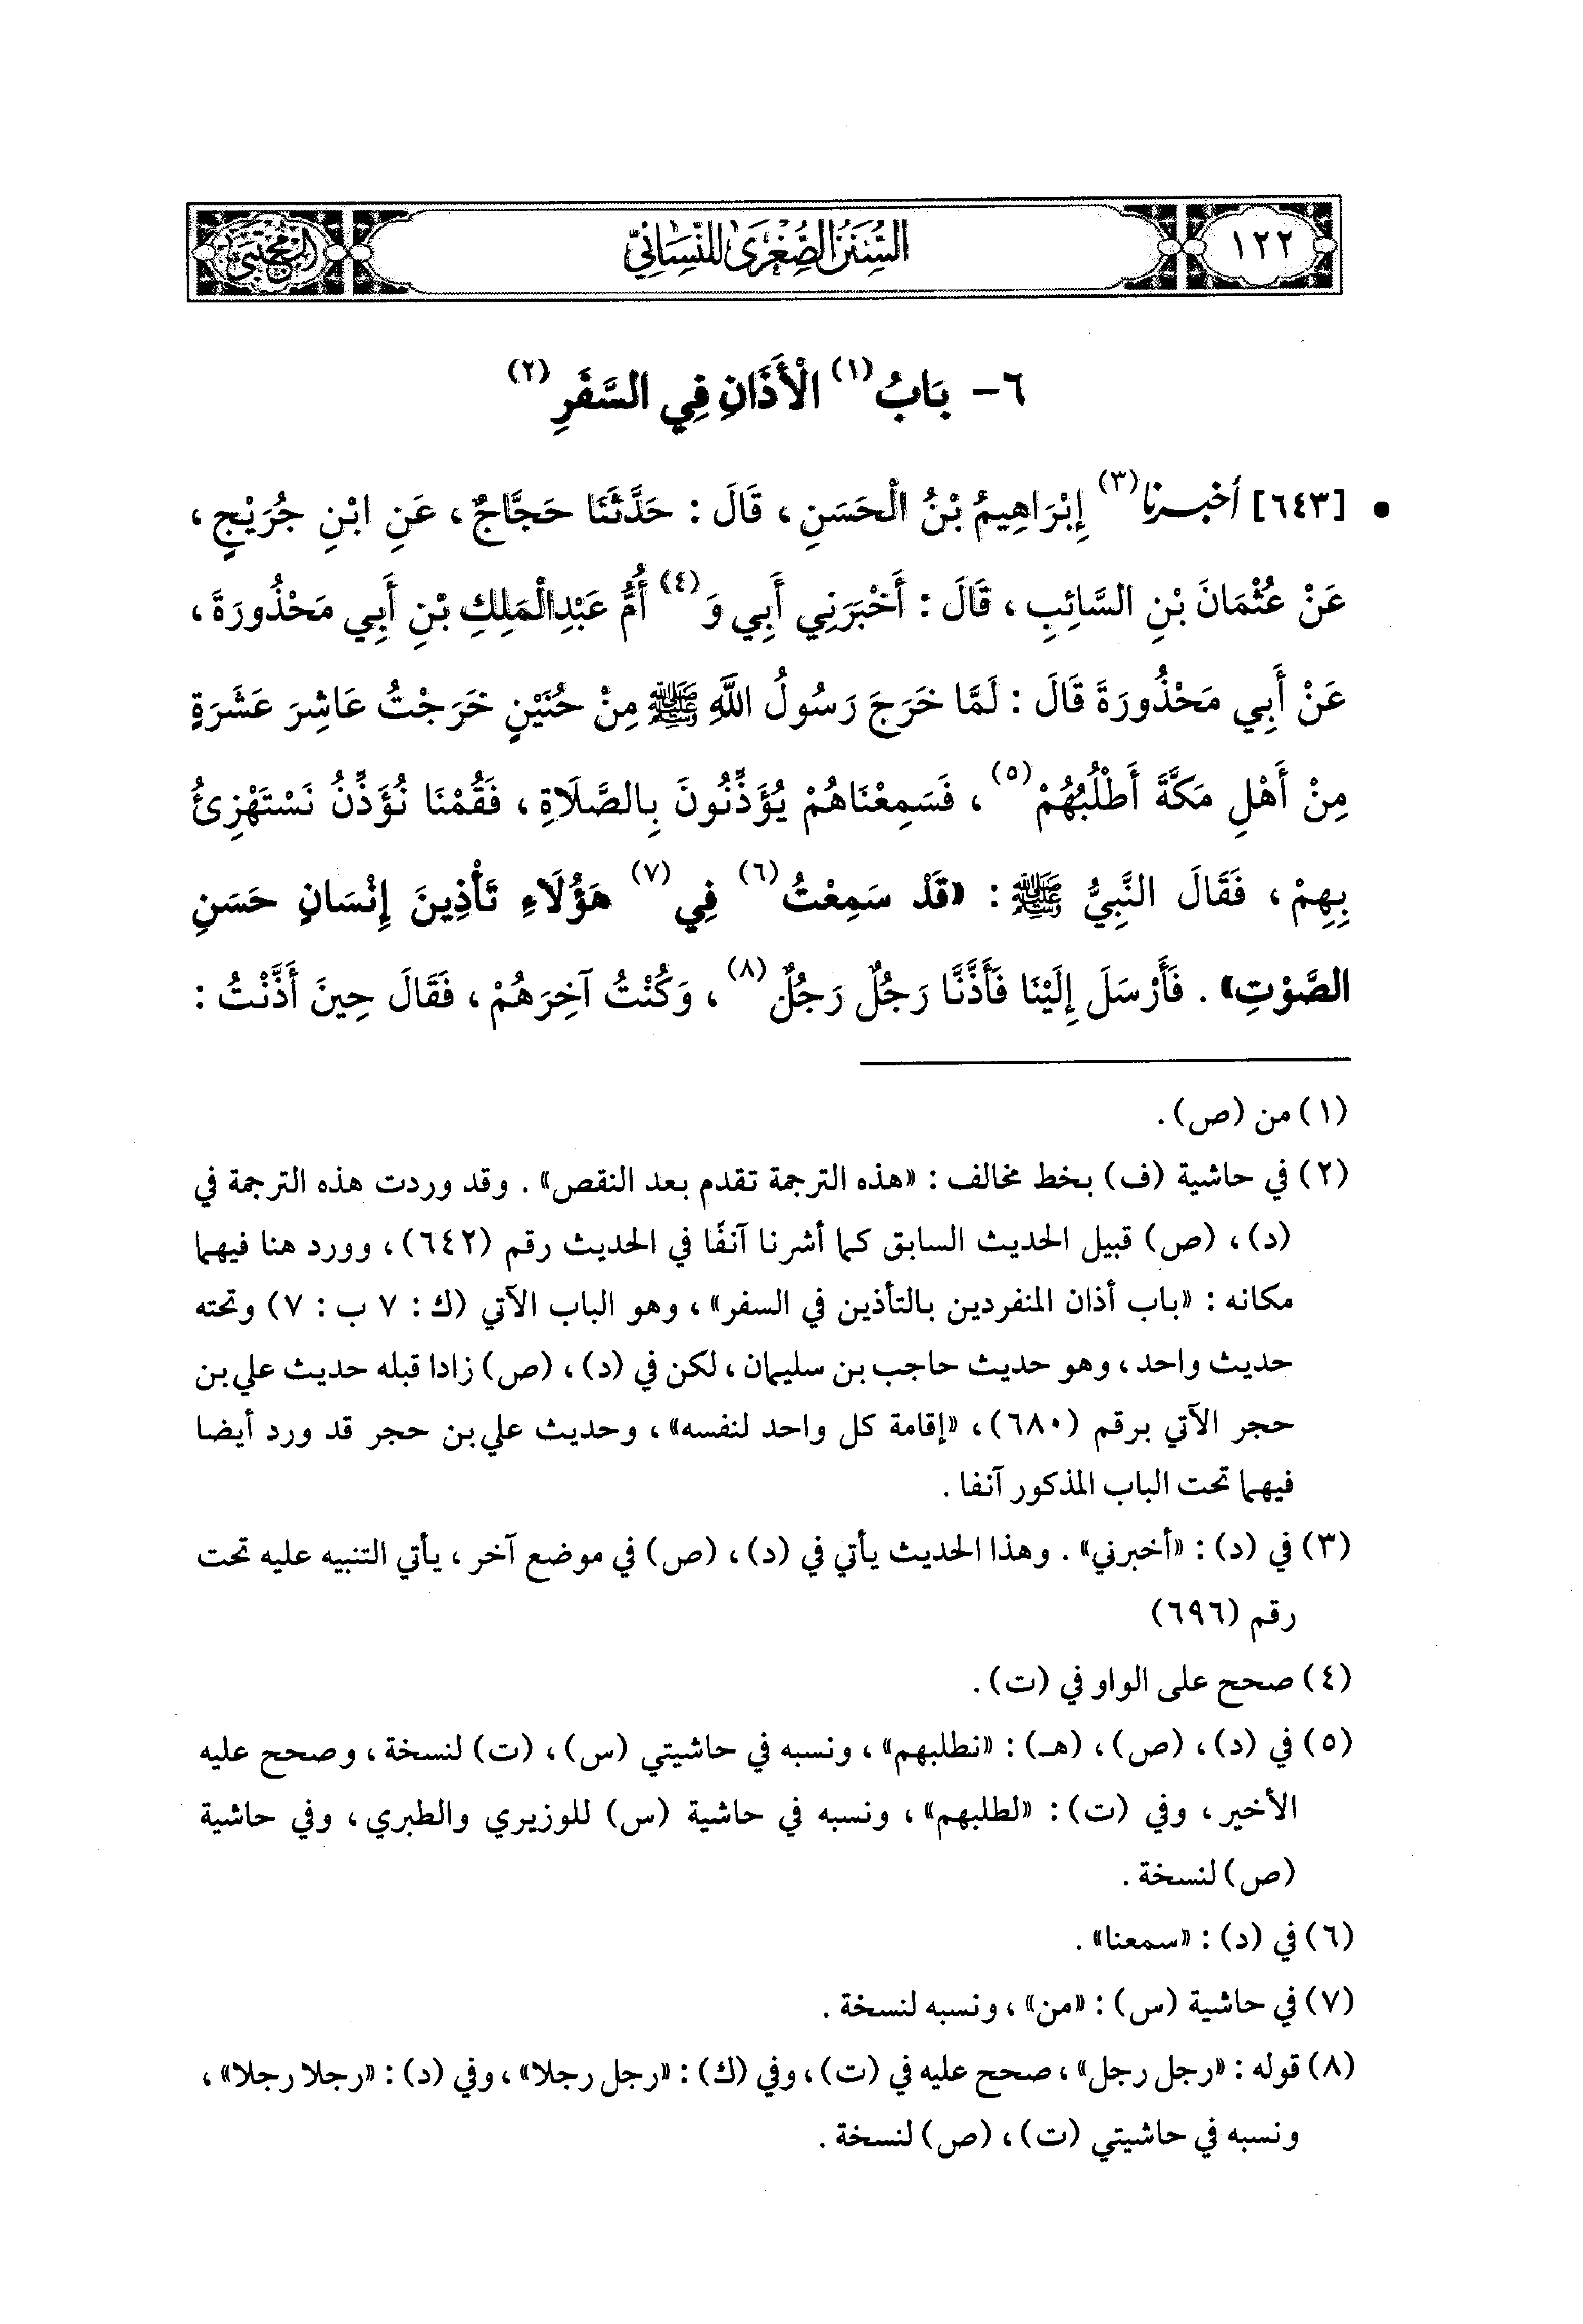 ١٢٢
السُّنَنُ الصُّغْرَىٰ لِلنَّسَائِيِّ
المجتبى
٦- بَابُ (١) الْأَذَانِ فِي السَّفَرِ (٢)
• [٦٤٣] أَخْبَرَنَا (٣) إِبْرَاهِيمُ بْنُ الْحَسَنِ، قَالَ: حَدَّثَنَا حَجَّاجٌ، عَنِ ابْنِ جُرَيْجٍ،
عَنْ عُثْمَانَ بْنِ السَّائِبِ، قَالَ: أَخْبَرَنِي أَبِي وَ (٤) أُمُّ عَبْدِالْمَلِكِ بْنِ أَبِي مَحْذُورَةَ،
عَنْ أَبِي مَحْذُورَةَ قَالَ: لَمَّا خَرَجَ رَسُولُ اللَّهِ ﷺ مِنْ حُنَيْنٍ خَرَجْتُ عَاشِرَ عَشَرَةٍ
مِنْ أَهْلِ مَكَّةَ أَطْلُبُهُمْ (٥)، فَسَمِعْنَاهُمْ يُؤَذِّنُونَ بِالصَّلَاةِ، فَقُمْنَا نُؤَذِّنُ نَسْتَهْزِئُ
بِهِمْ، فَقَالَ النَّبِيُّ ﷺ: «قَدْ سَمِعْتُ (٦) فِي (٧) هَؤُلَاءِ تَأْذِينَ إِنْسَانٍ حَسَنِ
الصَّوْتِ». فَأَرْسَلَ إِلَيْنَا فَأَذَّنَّا رَجُلٌ رَجُلٌ (٨)، وَكُنْتُ آخِرَهُمْ، فَقَالَ حِينَ أَذَّنْتُ:
(١) من (ص).
(٢) في حاشية (ف) بخط مخالف: «هذه الترجمة تقدم بعد النقص». وقد وردت هذه الترجمة في
(د)، (ص) قبيل الحديث السابق كما أشرنا آنفًا في الحديث رقم (٦٤٢)، وورد هنا فيهما
مكانه: «باب أذان المنفردين بالتأذين في السفر»، وهو الباب الآتي (ك: ٧ ب: ٧) وتحته
حديث واحد، وهو حديث حاجب بن سليمان، لكن في (د)، (ص) زادا قبله حديث علي بن
حجر الآتي برقم (٦٨٠)، «إقامة كل واحد لنفسه»، وحديث علي بن حجر قد ورد أيضا
فيهما تحت الباب المذكور آنفا.
(٣) في (د): «أخبرني». وهذا الحديث يأتي في (د)، (ص) في موضع آخر، يأتي التنبيه عليه تحت
رقم (٦٩٦)
(٤) صحح على الواو في (ت).
(٥) في (د)، (ص)، (هـ): «نطلبهم»، ونسبه في حاشيتي (س)، (ت) لنسخة، وصحح عليه
الأخير، وفي (ت): «لطلبهم»، ونسبه في حاشية (س) للوزيري والطبري، وفي حاشية
(ص) لنسخة.
(٦) في (د): «سمعنا».
(٧) في حاشية (س): «من»، ونسبه لنسخة.
(٨) قوله: «رجل رجل»، صحح عليه في (ت)، وفي (ك): «رجل رجلا»، وفي (د): «رجلا رجلا»،
ونسبه في حاشيتي (ت)، (ص) لنسخة.